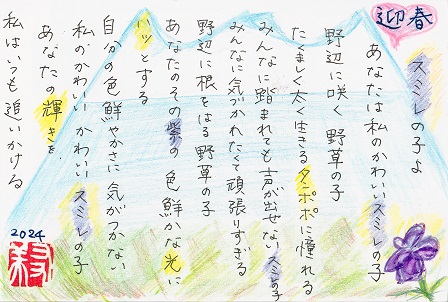 迎春
スミレの子よ
あなたは私のかわいいスミレの子
野辺に咲く 野草の子
たくましく太く生きるタンポポに憧れる
みんなに踏まれても声が出せないスミレの子
みんなに気づかれたくて頑張りすぎる
野辺に根をはる野草の子
あなたのその紫の色鮮かな光に
ハッとする
自分の色鮮やかさに気がつかない
私のかわいい かわいい スミレの子
あなたの輝きを
私はいつも追いかける
2024